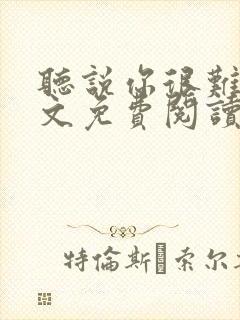 聽說你很難
文免費閱讀
特倫斯·索尔